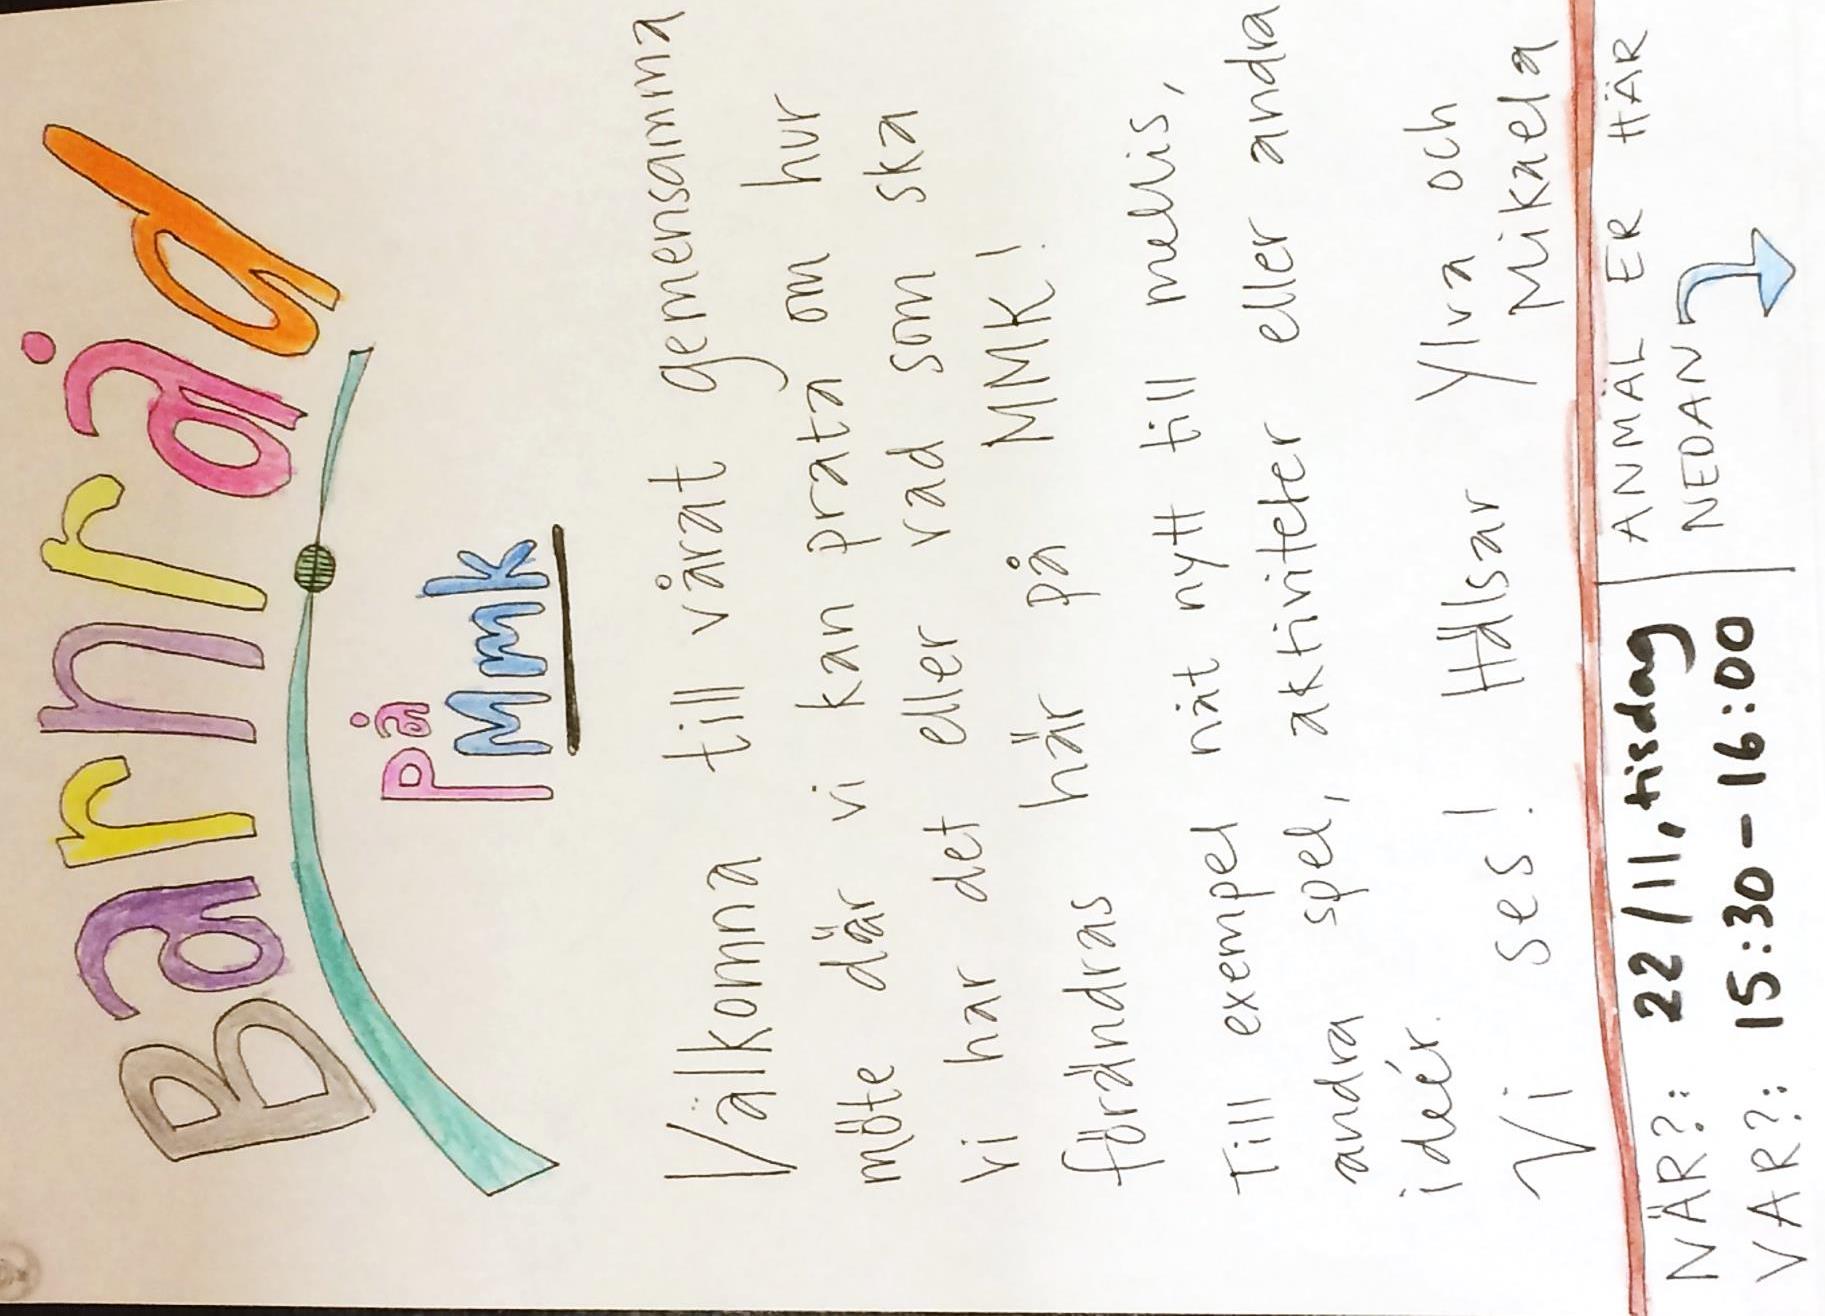 Barnråd
på
Mmk
Välkomna till vårat gemensamma
möte där vi kan prata om hur
vi har det eller vad som ska
förändras här på MMK!
Till exempel nåt nytt till mellis,
andra spel, aktiviteter eller andra
ideér.
Vi ses! Hälsar Ylva och
Mikaela
NÄR?: 22/11, tisdag
VAR?: 15:30-16:00
ANMÄL ER HÄR
NEDAN